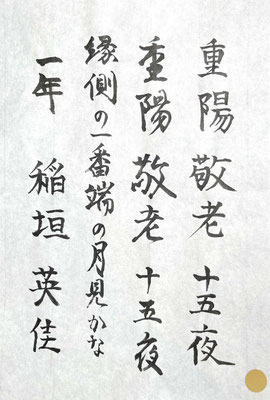 重陽 敬老 十五夜
重陽 敬老 十五夜
縁側の一番端の月見かな
一年 稲垣 英佳